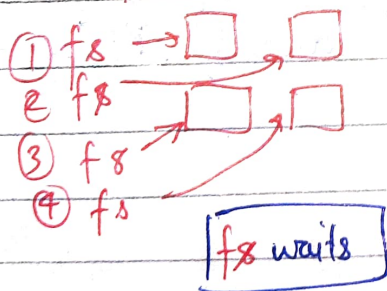 ① fs →
2 fs
③ fs
④ fs
fs waits